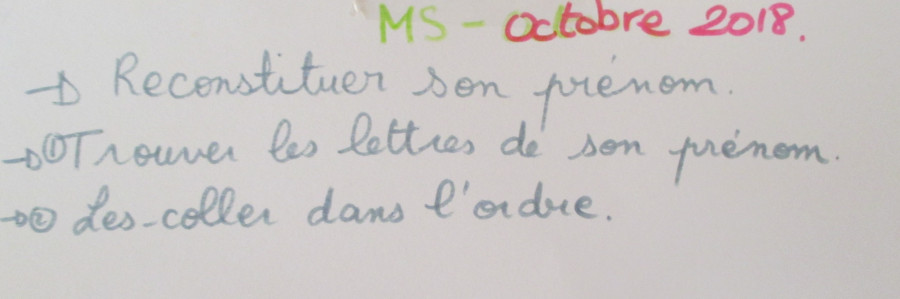 MS - octobre 2018.
→ Reconstituer son prénom.
→ ① Trouver les lettres de son prénom.
→ ② Les-coller dans l'ordre.